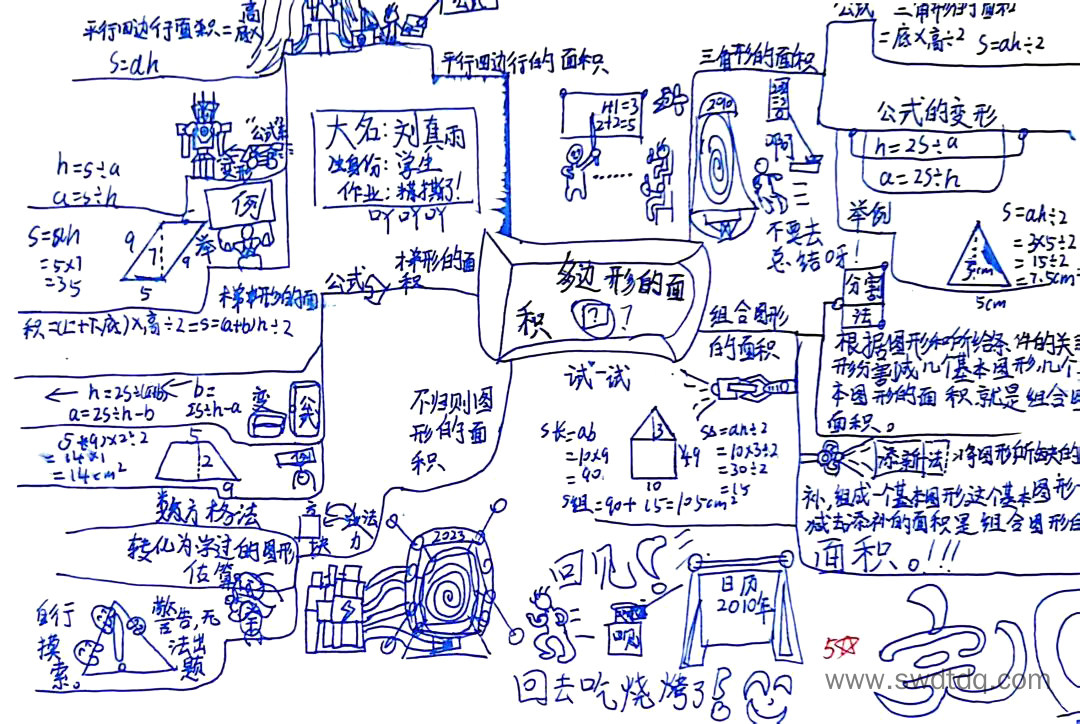 公式
平行四边行面积=底×高
S=ah
平行四边行的面积
三角形的面积
=底×高÷2 S=ah÷2
公式的变形
h=2S÷a
a=2S÷h
大名:刘真雨
身份:学生
作业:
1+1=3
2+2=5
……
2910
啊
不要去
总结呀!
"公式"
变形
h=S÷a
a=S÷h
例
举
S=ah
=5×7
=35
9
7
9
5
举例
S=ah÷2
=3×5÷2
=15÷2
=7.5cm²
3cm
5cm
多边形的面
积 ? ?
梯形的面
积
公式
梯形的面
积=(上+下底)×高÷2=S=(a+b)h÷2
b=
2S÷h-a
a=2S÷h-b
变
公式
=14cm²
5
2
9
例
组合图形
的面积
分割
法
根据图形和所给条件的关
形分割成几个基本图形,几个
本图形的面积就是组合图
面积。
添补法
将图形所缺的
补,组成一个基本图形,这个基本图形
减去添补的面积是组合图形的
面积。!!!
试一试
S长=ab
=10×9
=90
3
9
10
S=ah÷2
=10×3÷2
=30÷2
=15
S组=90+15=105cm²
不归则图
形的面
积
数方格法
方
块
法
力
转化为学过的图形
估算
自行
摸
索。
警告,无
法出
题
2023
回见!
日历
2010年
回去吃烧烤了
5☆
www.swdtdq.com